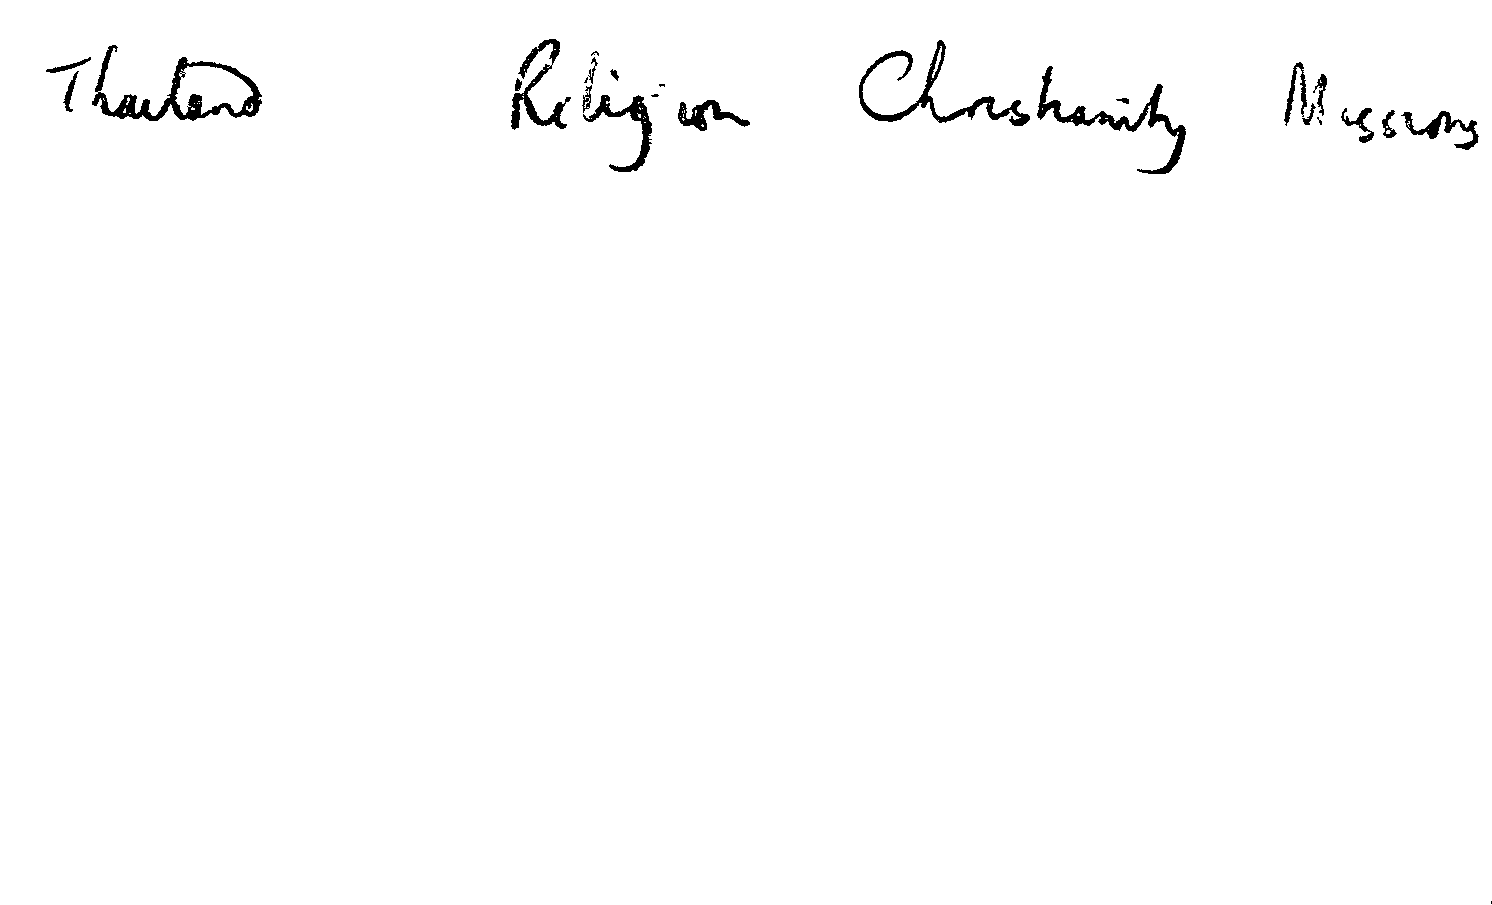 Thailand Religion Christianity Missions